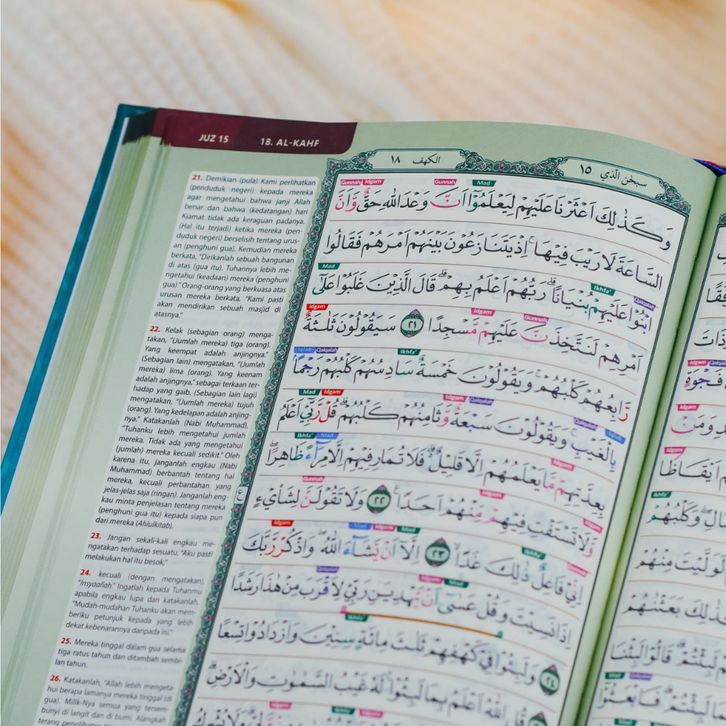 JUZ 15 18. AL-KAHF
21. Demikian (pula) Kami perlihatkan
(penduduk negeri) kepada mereka
agar mengetahui bahwa janji Allah
benar dan bahwa (kedatangan) hari
Kiamat tidak ada keraguan padanya.
(Hal itu terjadi) ketika mereka (pen-
duduk negeri) berselisih tentang urus-
an (penghuni gua). Kemudian mereka
berkata, "Dirikanlah sebuah bangunan
di atas (gua itu). Tuhannya lebih me-
ngetahui (keadaan) mereka (penghuni
gua)." Orang-orang yang berkuasa atas
urusan mereka berkata, "Kami pasti
akan mendirikan sebuah masjid di
atasnya."
22. Kelak (sebagian orang) menga-
takan, "(Jumlah mereka) tiga (orang).
Yang keempat adalah anjingnya."
(Sebagian lain) mengatakan, "(Jumlah
mereka) lima (orang). Yang keenam
adalah anjingnya," sebagai terkaan ter-
hadap yang gaib. (Sebagian lain lagi)
mengatakan, "(Jumlah mereka) tujuh
(orang). Yang kedelapan adalah anjing-
nya." Katakanlah (Nabi Muhammad),
"Tuhanku lebih mengetahui jumlah
mereka. Tidak ada yang mengetahui
(jumlah) mereka kecuali sedikit." Oleh
karena itu, janganlah engkau (Nabi
Muhammad) berbantah tentang hal
mereka, kecuali perbantahan yang
jelas-jelas saja (ringan). Janganlah eng-
kau minta penjelasan tentang mereka
(penghuni gua itu) kepada siapa pun
dari mereka (Ahlulkitab).
23. Jangan sekali-kali engkau me-
ngatakan terhadap sesuatu, "Aku pasti
melakukan hal itu besok,"
24. kecuali (dengan mengatakan),
"Insyaallah." Ingatlah kepada Tuhanmu
apabila engkau lupa dan katakanlah,
"Mudah-mudahan Tuhanku akan mem-
beriku petunjuk kepada yang lebih
dekat kebenarannya daripada ini."
25. Mereka tinggal dalam gua selama
tiga ratus tahun dan ditambah sembi-
lan tahun.
26. Katakanlah, "Allah lebih mengeta-
hui berapa lamanya mereka tinggal (di
gua). Milik-Nya semua yang tersem-
bunyi di langit dan di bumi. Alangkah
سبحن الذي ١٥ الكهف ١٨
وَكَذٰلِكَ اَعْثَرْنَا عَلَيْهِمْ لِيَعْلَمُوْٓا اَنَّ وَعْدَ اللّٰهِ حَقٌّ وَّاَنَّ
السَّاعَةَ لَا رَيْبَ فِيْهَاۚ اِذْ يَتَنَازَعُوْنَ بَيْنَهُمْ اَمْرَهُمْ فَقَالُوا
ابْنُوْا عَلَيْهِمْ بُنْيَانًاۗ رَبُّهُمْ اَعْلَمُ بِهِمْۗ قَالَ الَّذِيْنَ غَلَبُوْا عَلٰٓى
اَمْرِهِمْ لَنَتَّخِذَنَّ عَلَيْهِمْ مَّسْجِدًا ٢١ سَيَقُوْلُوْنَ ثَلٰثَةٌ
رَّابِعُهُمْ كَلْبُهُمْۚ وَيَقُوْلُوْنَ خَمْسَةٌ سَادِسُهُمْ كَلْبُهُمْ رَجْمًاۢ
بِالْغَيْبِۚ وَيَقُوْلُوْنَ سَبْعَةٌ وَّثَامِنُهُمْ كَلْبُهُمْۗ قُلْ رَّبِّيْٓ اَعْلَمُ
بِعِدَّتِهِمْ مَّا يَعْلَمُهُمْ اِلَّا قَلِيْلٌۗ فَلَا تُمَارِ فِيْهِمْ اِلَّا مِرَاۤءً ظَاهِرًاۖ
وَّلَا تَسْتَفْتِ فِيْهِمْ مِّنْهُمْ اَحَدًا ٢٢ وَلَا تَقُوْلَنَّ لِشَا۟يْءٍ
اِنِّيْ فَاعِلٌ ذٰلِكَ غَدًا ٢٣ اِلَّآ اَنْ يَّشَاۤءَ اللّٰهُ ۖوَاذْكُرْ رَّبَّكَ
اِذَا نَسِيْتَ وَقُلْ عَسٰٓى اَنْ يَّهْدِيَنِ رَبِّيْ لِاَقْرَبَ مِنْ هٰذَا رَشَدًا
وَلَبِثُوْا فِيْ كَهْفِهِمْ ثَلٰثَ مِائَةٍ سِنِيْنَ وَازْدَادُوْا تِسْعًا
قُلِ اللّٰهُ اَعْلَمُ بِمَا لَبِثُوْا ۚ لَهٗ غَيْبُ السَّمٰوٰتِ وَالْاَرْضِۗ